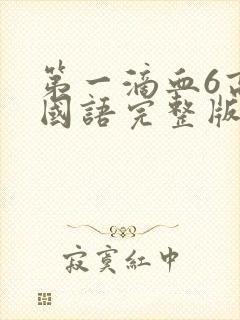 第一滴血6高
國語完整版
寂寞紅中